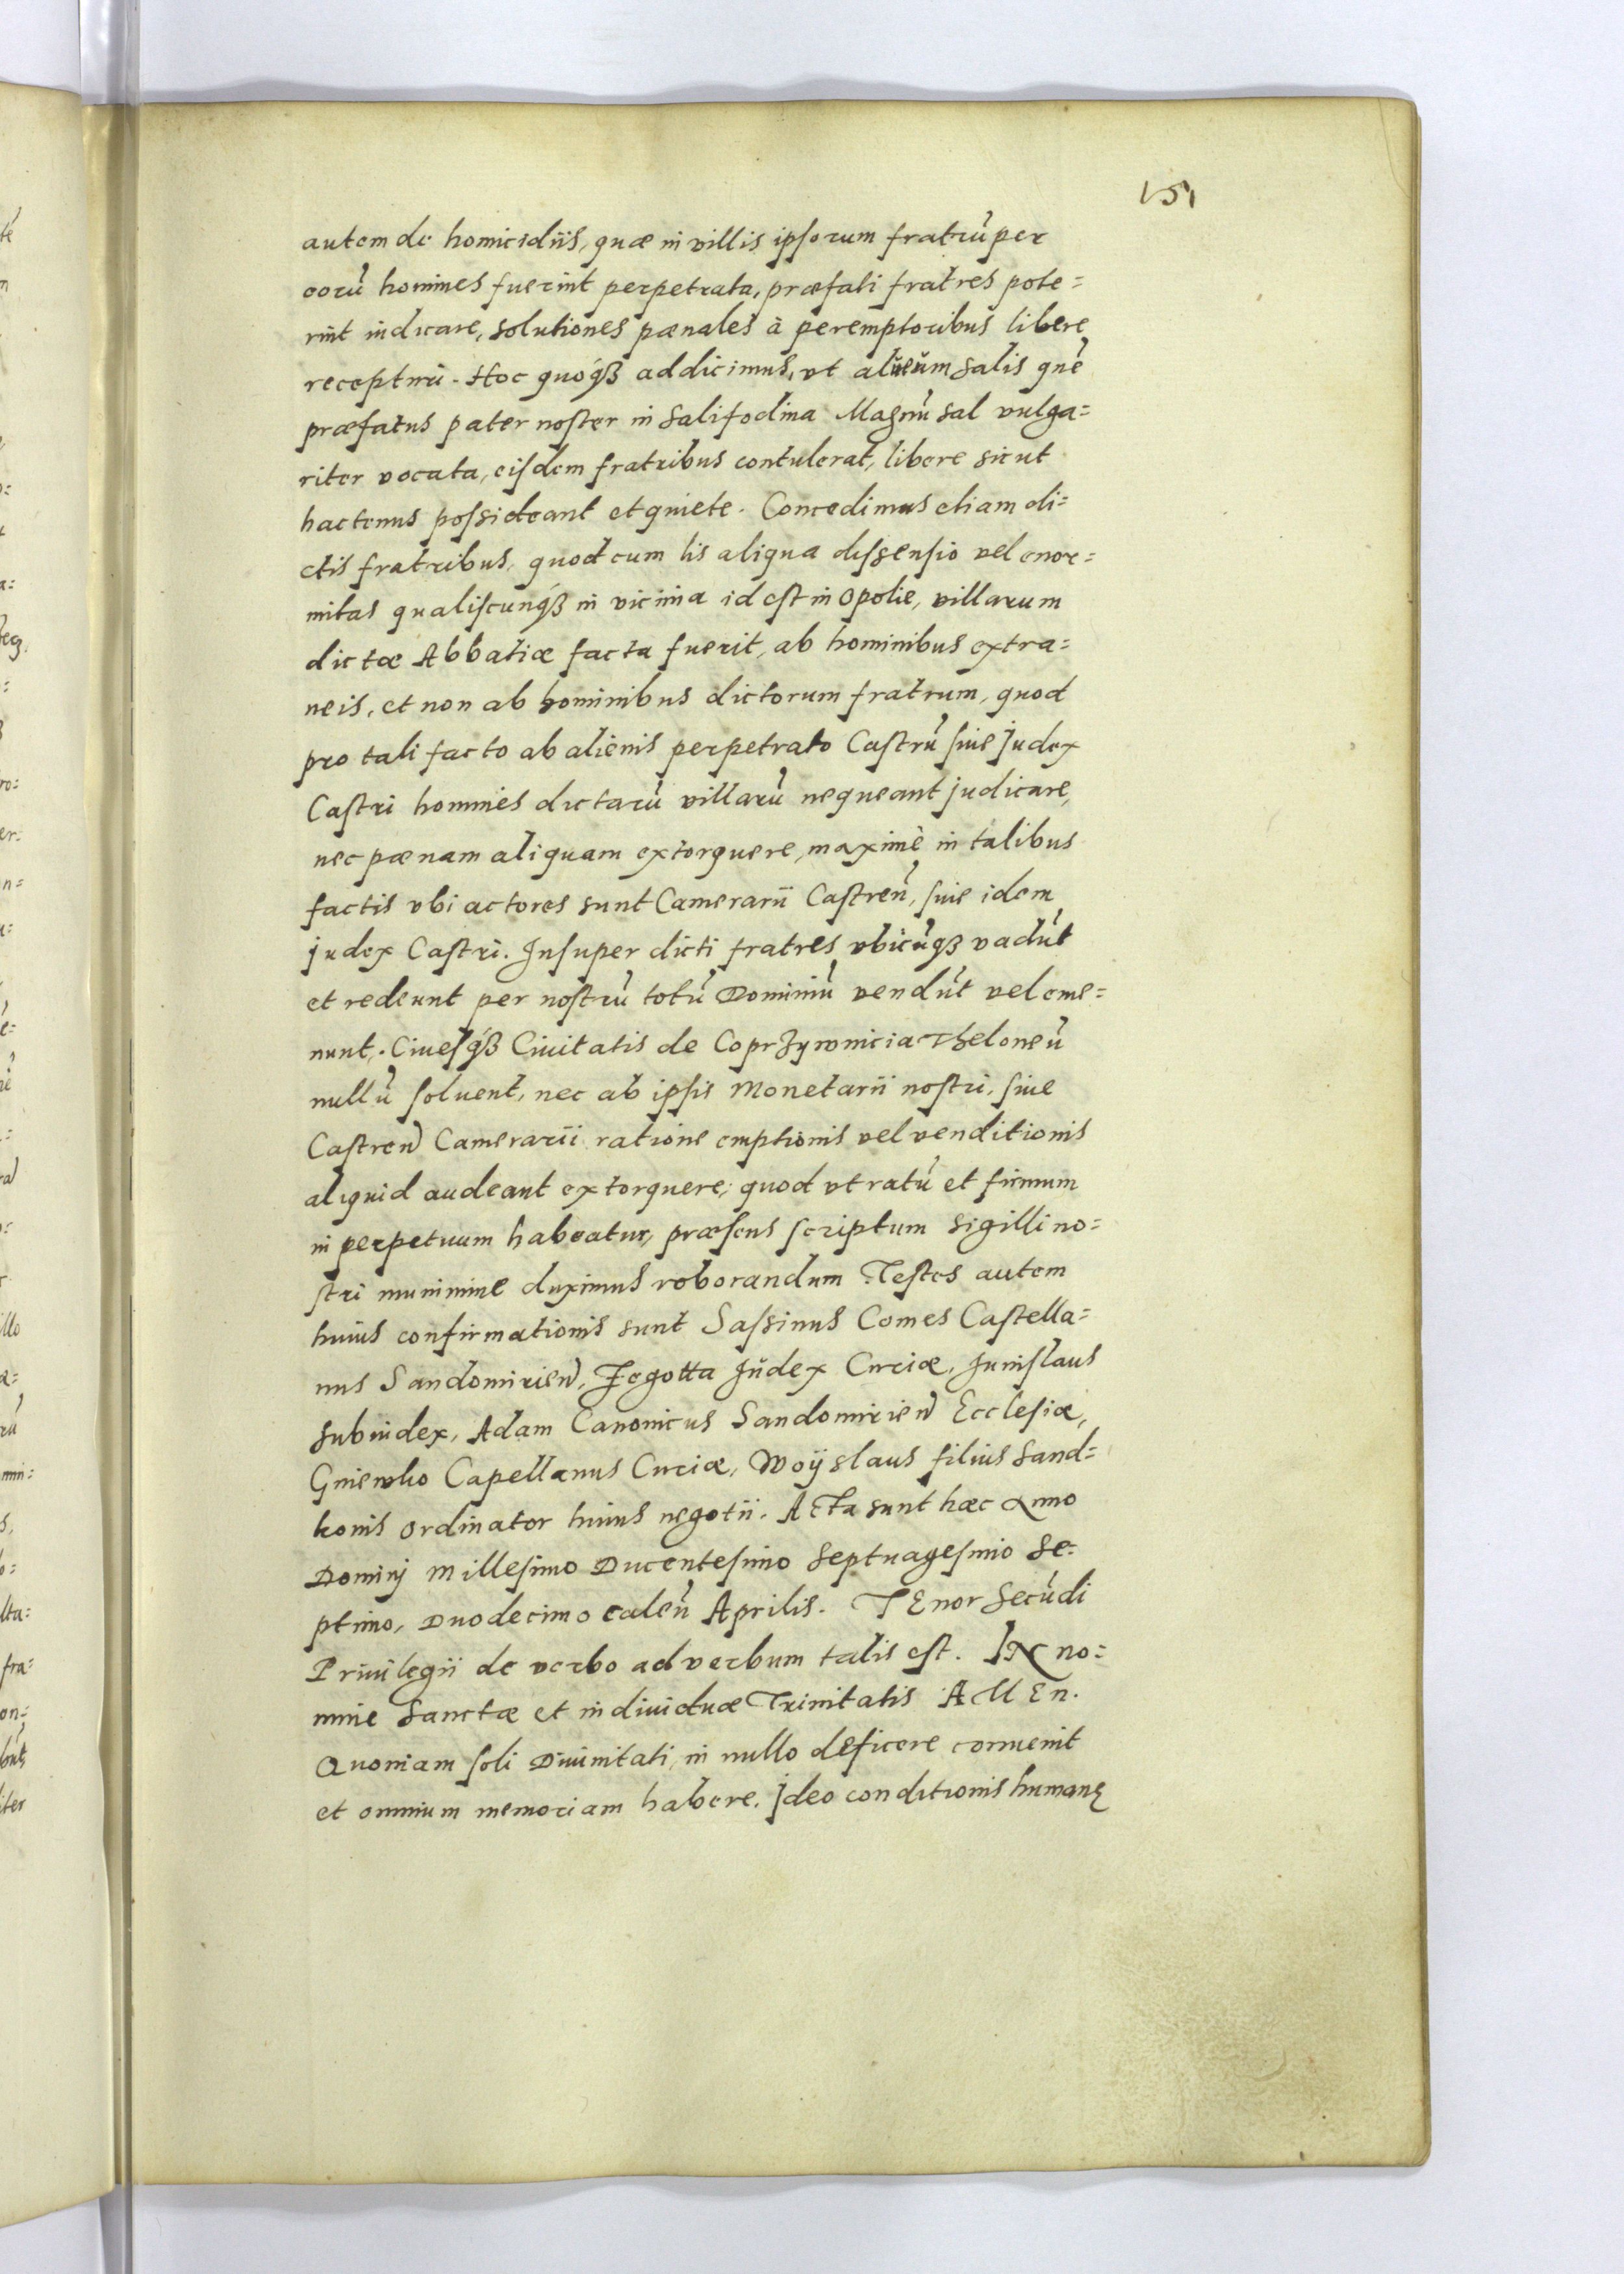 151
autem de homicidiis, quæ in villis ipsorum fratrũ per
eorũ homines fuerint perpetrata, præfati fratres pote=
rint indicare, solutiones pænales à peremptoribus libere
recepturi. Hoc quoq́ꝫ addicimus, vt alueum salis quẽ
præfatus pater noster in Salifodina Magnũ sal vulga=
riter vocata, eisdem fratribus contulerat, libere sicut
hactenus possideant et quiete. Concedimus etiam di=
ctis fratribus, quod cum lis aliqua dissensio vel enor=
mitas qualiscunq́ꝫ in vicinia id est in opolie, villarum
dictæ Abbatiæ facta fuerit, ab hominibus extra=
neis, et non ab hominibus dictorum fratrum, quod
pro tali facto ab alienis perpetrato Castrũ siue Judex
Castri homines dictarũ villarũ nequeant judicare,
nec pænam aliquam extorquere, maximè in talibus
factis vbi actores sunt Camerarii Castreñ, siue idem
judex Castri. Insuper dicti fratres vbicũqꝫ vadũt
et redeunt per nostrũ totũ Dominiũ vendũt vel eme=
nunt. Ciuesq́ꝫ Ciuitatis de Coprzywnicia Theloneũ
nullũ soluent, nec ab ipsis Monetarii nostri, siue
Castreñ Camerarii ratione emptionis vel venditionis
aliquid audeant extorquere; quod vt ratũ et firmum
in perpetuum habeatur, præsens scriptum sigilli no=
stri munimine duximus roborandum. Testes autem
huius confirmationis sunt Sassinus Comes Castella=
nus Sandomirieñ, Zegotta Judex Curiæ, Junislaus
subiudex, Adam Canonicus Sandomirieñ Ecclesiæ,
Gniewko Capellanus Curiæ, Woÿslaus filius Sand=
konis ordinator huius negotii. Acta sunt hæc Anno
Dominj Millesimo Ducentesimo Septuagesimo Se=
ptimo, Duodecimo caleñ Aprilis. TEnor Secũdi
Priuilegii de verbo ad verbum talis est. IN no=
mine Sanctæ et indiuiduæ Trinitatis AMEn.
Quoniam soli Diuinitati, in nullo deficere conuenit
et omnium memoriam habere. Ideo conditionis humanę